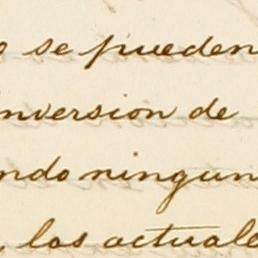 o se pueden
inversion de
ndo ningun
, las actuale